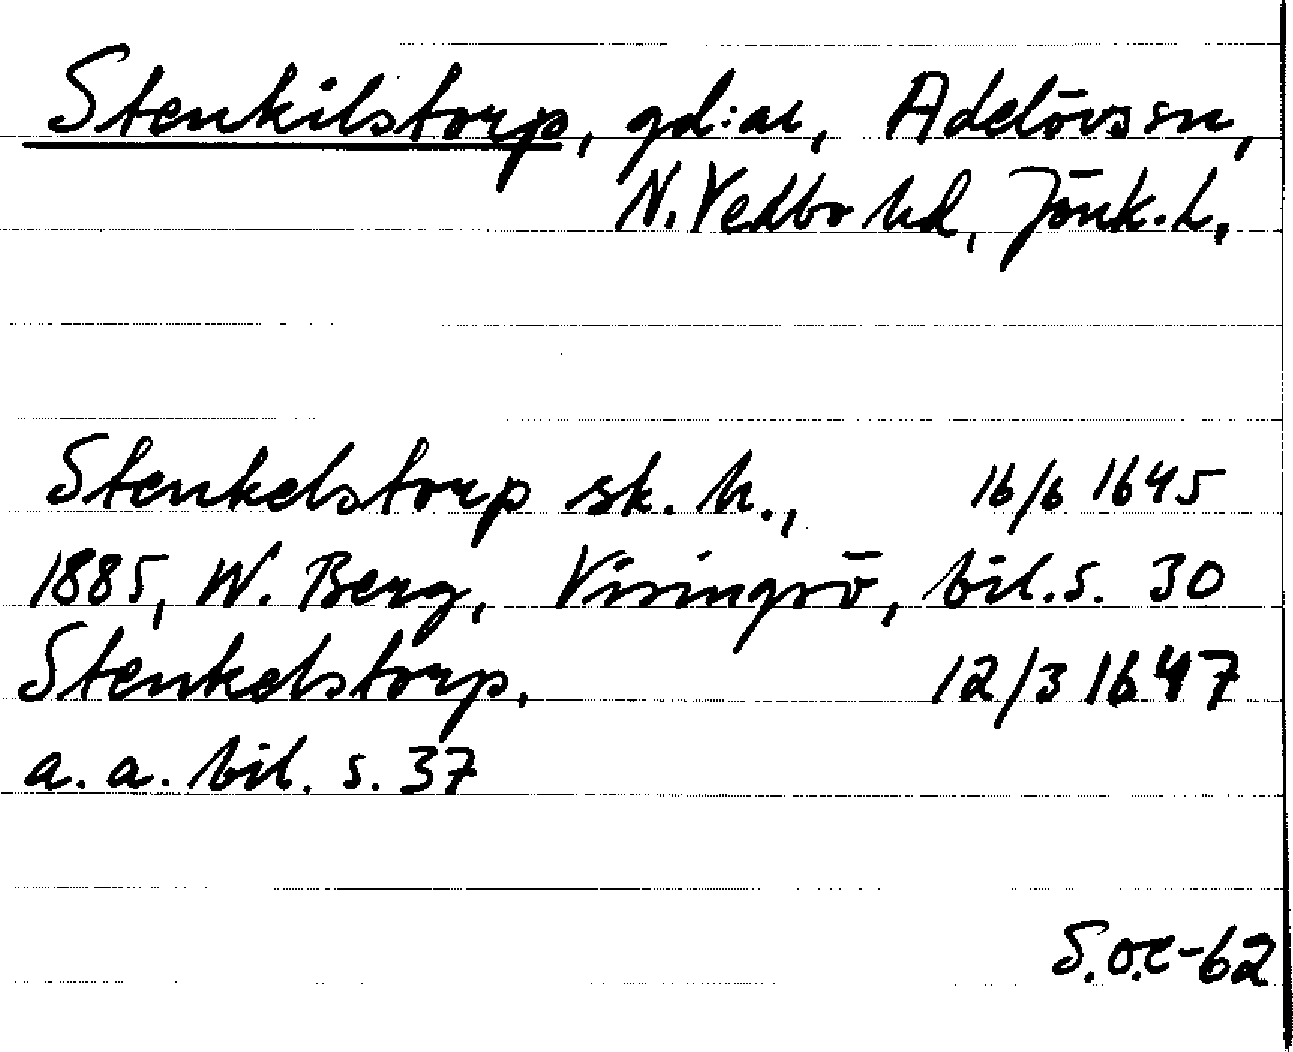 Stenkilstorp, gd:ar, Adelövs sn,
N. Vedbo hd, Jönk. L.
Stenkelstorp sk. h., 16/6 1645
1885, W. Berg, Visingsö, bil. s. 30
Stenkelstorp, 12/3 1647
a. a. bil. s. 37
S.O.E-62